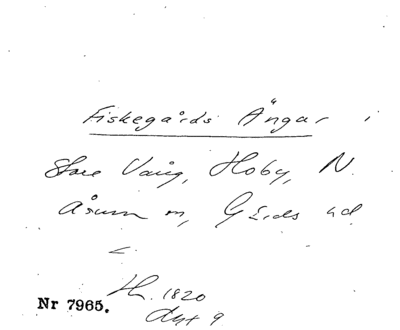 Fiskegårds Ängar i
Store Vång, Hoby, N.
Åsum m, Gärds hd
H. 1820
Akt 9
Nr 7965.